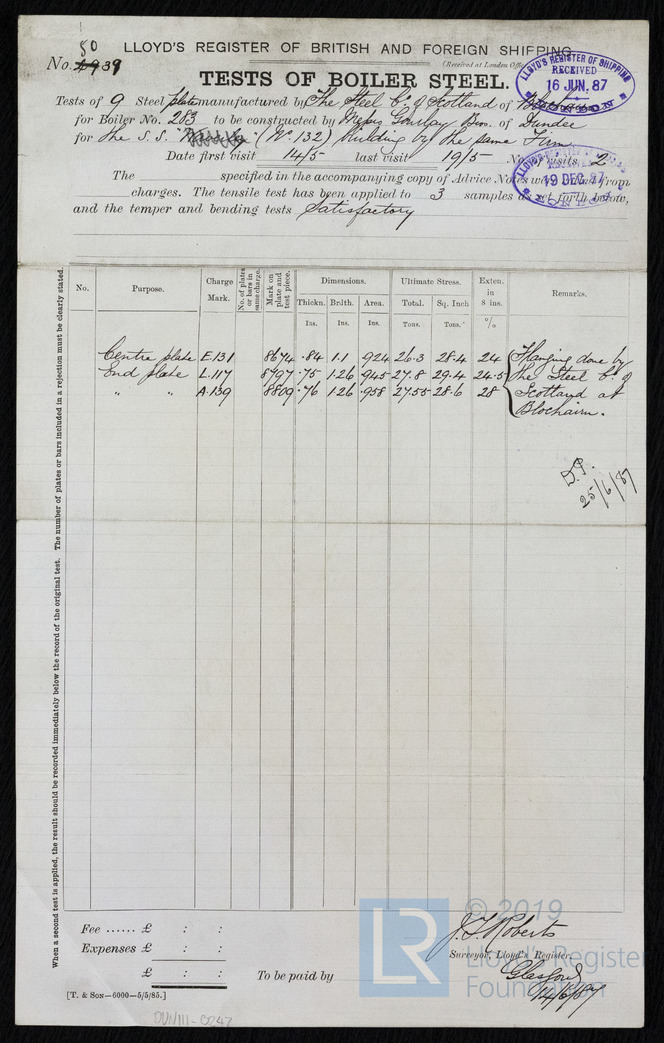 80
LLOYD'S REGISTER OF BRITISH AND FOREIGN SHIPPING.
No. 39
(Received at London Office
TESTS OF BOILER STEEL.
LLOYD'S REGISTER OF SHIPPING
RECEIVED
16 JUN. 87
Tests of 9 Steel plates manufactured by The Steel Co. of Scotland of
for Boiler No. 283 to be constructed by Messrs Gourlay Bros. of Dundee
for the S.S. (No. 132) building by the same Firm
Date first visit 14/5 last visit 19/5 No. of visits 2
19 DEC. 87
The specified in the accompanying copy of Advice Notes were made from
charges. The tensile test has been applied to 3 samples as set forth below,
and the temper and bending tests Satisfactory
No. Purpose. Charge Mark. No. of plates or bars in same charge. Mark on plate and test piece. Dimensions. Ultimate Stress. Exten. in 8 ins. Remarks.
Thickn. Brdth. Area. Total. Sq. Inch
Ins. Ins. Ins. Tons. Tons. %
Centre plate E.131 8674 .84 1.1 .924 26.3 28.4 24 Flanging done by
End plate L.117 8797 .75 1.26 .945 27.8 29.4 24.5 the Steel Co. of
" " A.139 8809 .76 1.26 .958 27.55 28.6 28 Scotland at
Blochairn.
D.P.
25/6/87
When a second test is applied, the result should be recorded immediately below the record of the original test. The number of plates or bars included in a rejection must be clearly stated.
Fee ...... £ : :
Expenses £ : :
£ : :
To be paid by
J. T. Roberts
Surveyor, Lloyd's Register.
Glasgow
14/6/87
[T. & SON—6000—5/5/85.]
DUN111-0247
LR
© 2019
Lloyd's Register
Foundation